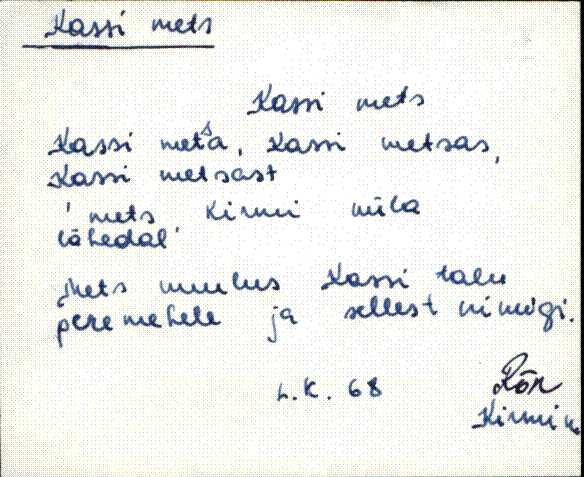 Kassi mets
Kassi mets
Kassi metsa, Kassi metsas,
Kassi metsast
'mets Kirmi küla
lähedal'
Mets kuulus Kassi talu
peremehele ja sellest nimigi.
L.K. 68
Rõn
Kirmi k.